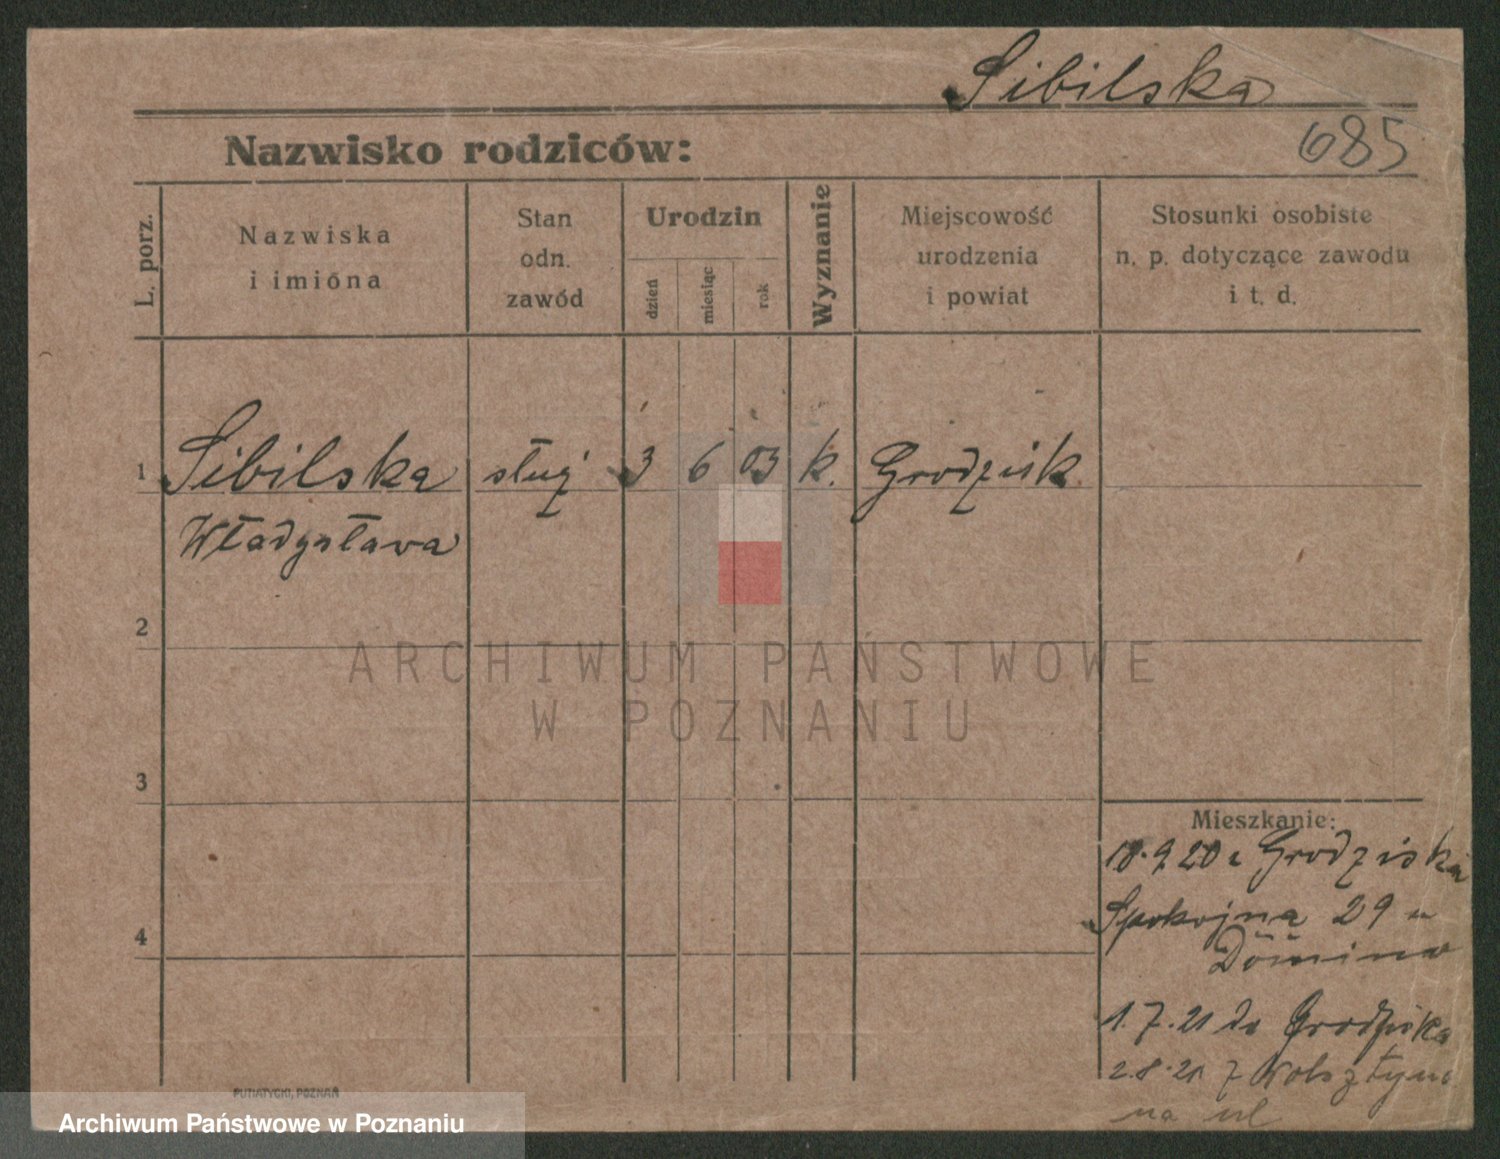 Sibilska
Nazwisko rodziców:
685
L. porz.
Nazwiska
i imióna
Stan
odn.
zawód
Urodzin
dzień
miesiąc
rok
Wyznanie
Miejscowość
urodzenia
i powiat
Stosunki osobiste
n. p. dotyczące zawodu
i t. d.
1 Sibilska służ 3 6 03 k. Grodzisk
Władysława
2
ARCHIWUM PAŃSTWOWE
W POZNANIU
3
Mieszkanie:
18.9.20 z Grodziska
4
Spokojna 29 u
1.7.21 do Grodziska
2.8.21 z Wolsztyna
na ul
PUTIATYCKI, POZNAŃ
Archiwum Państwowe w Poznaniu